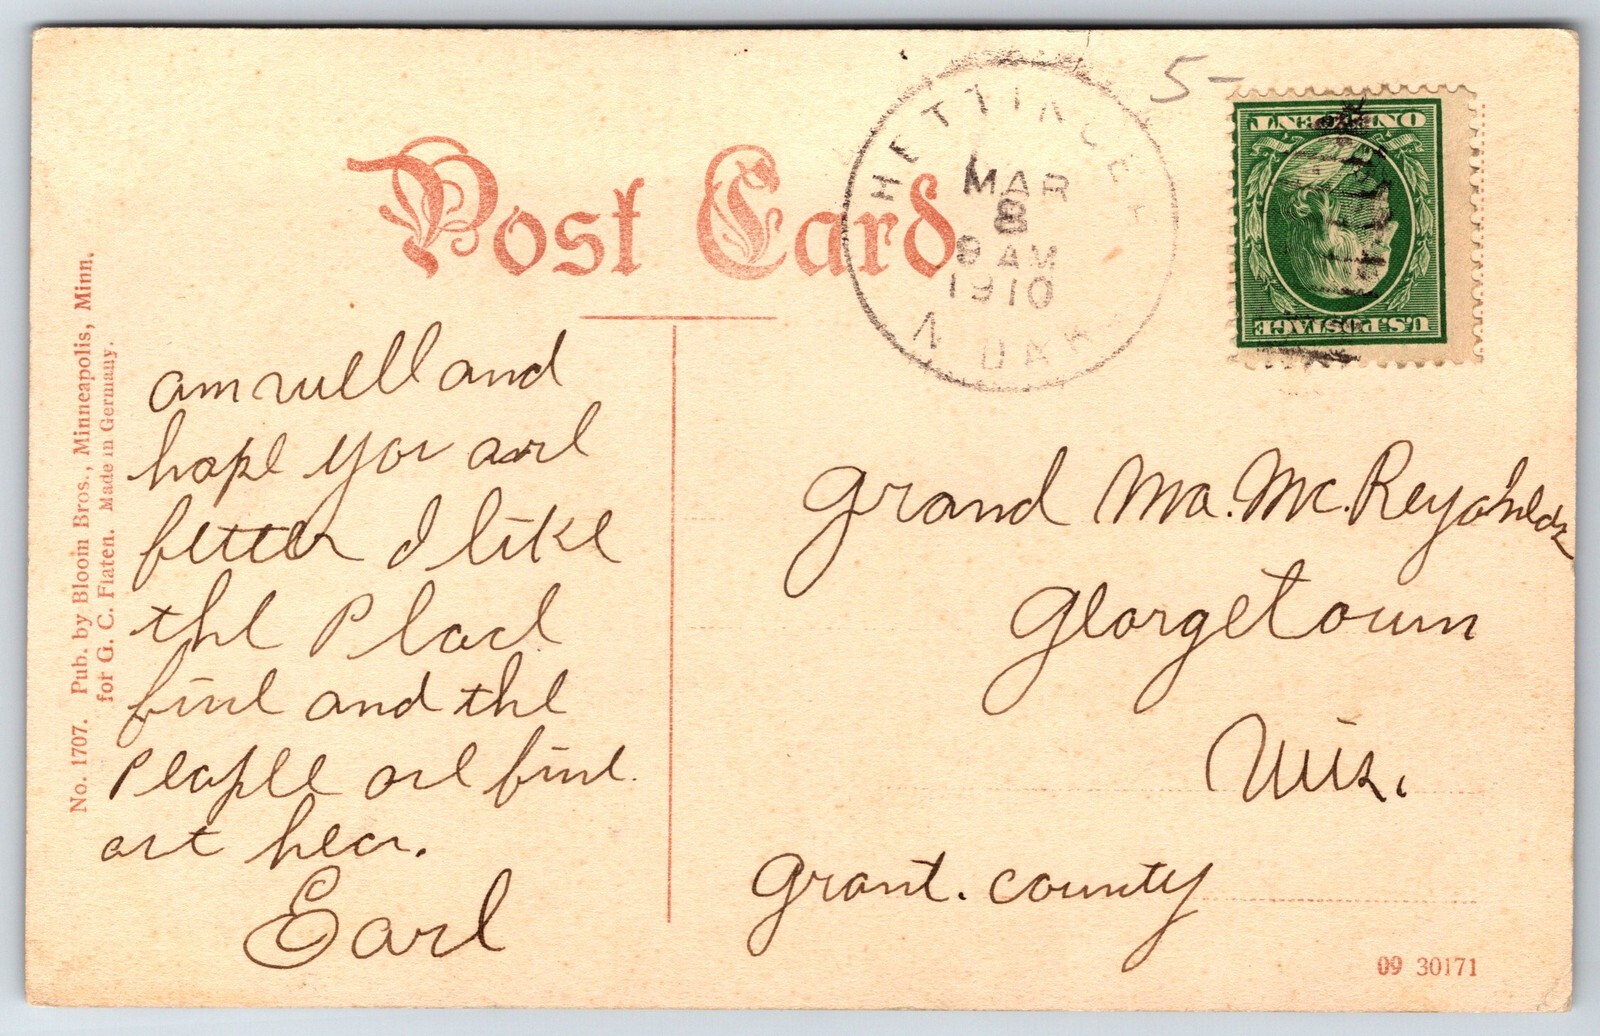 Post Card
HETTINGER
MAR
8
9 AM
1910
N. DAK.
5-
ONE CENT
U.S. POSTAGE
am well and
hope you are
better I like
the Place
fine and the
People are fine
out hear.
Earl
Grand Ma. Mc. Reynolds
Georgetown
Wis.
Grant. county
No. 1707. Pub. by Bloom Bros., Minneapolis, Minn.
for G. C. Flaten. Made in Germany.
09 30171